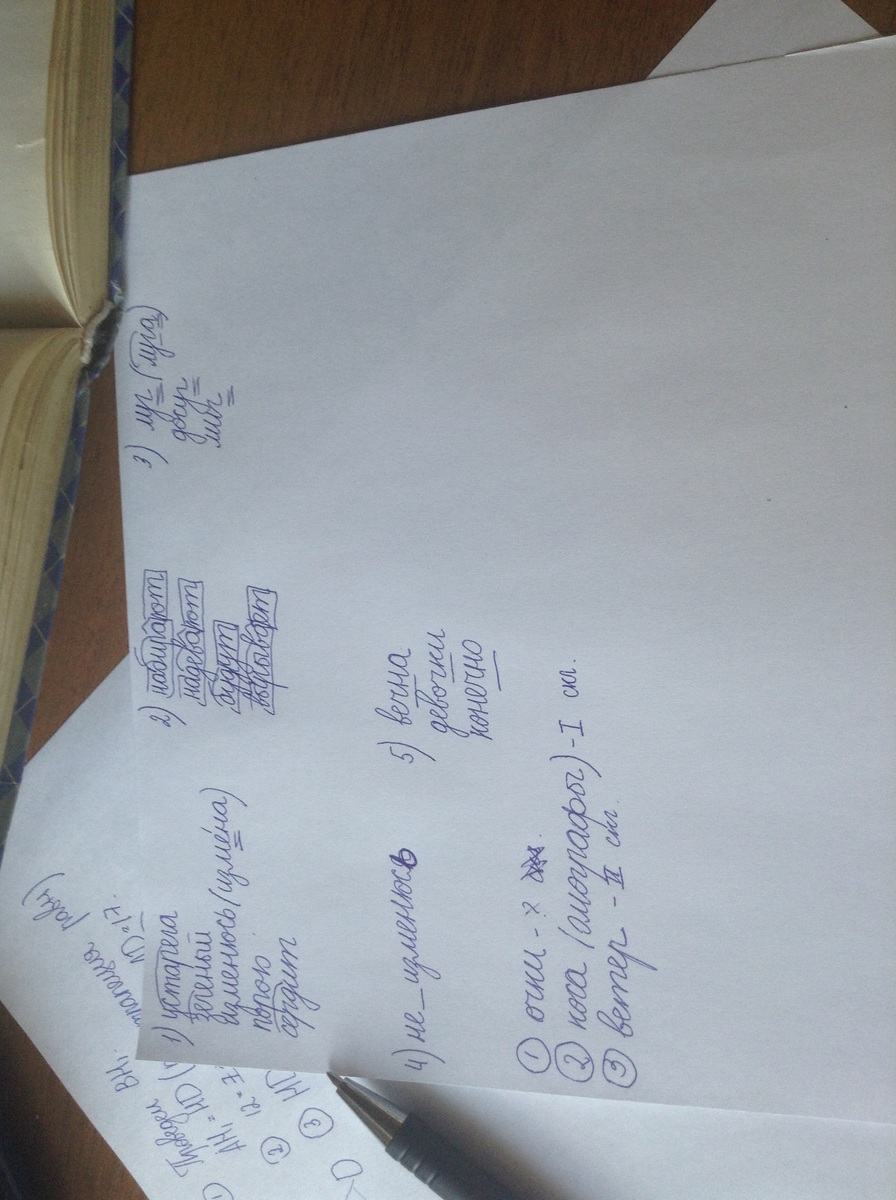 1) устарела
зеленый
изменюсь (измена)
порою
сердит
2) набирают
надевают
будут
взрывают
3) луг (луга)
досуг
миг
4) не_изменюсь
5) вечна
девочки
конечно
① очки - ?
② коса (омографы) - I скл.
③ ветер - II скл.
Проведем BH₁
AH₁ = HD
②
③